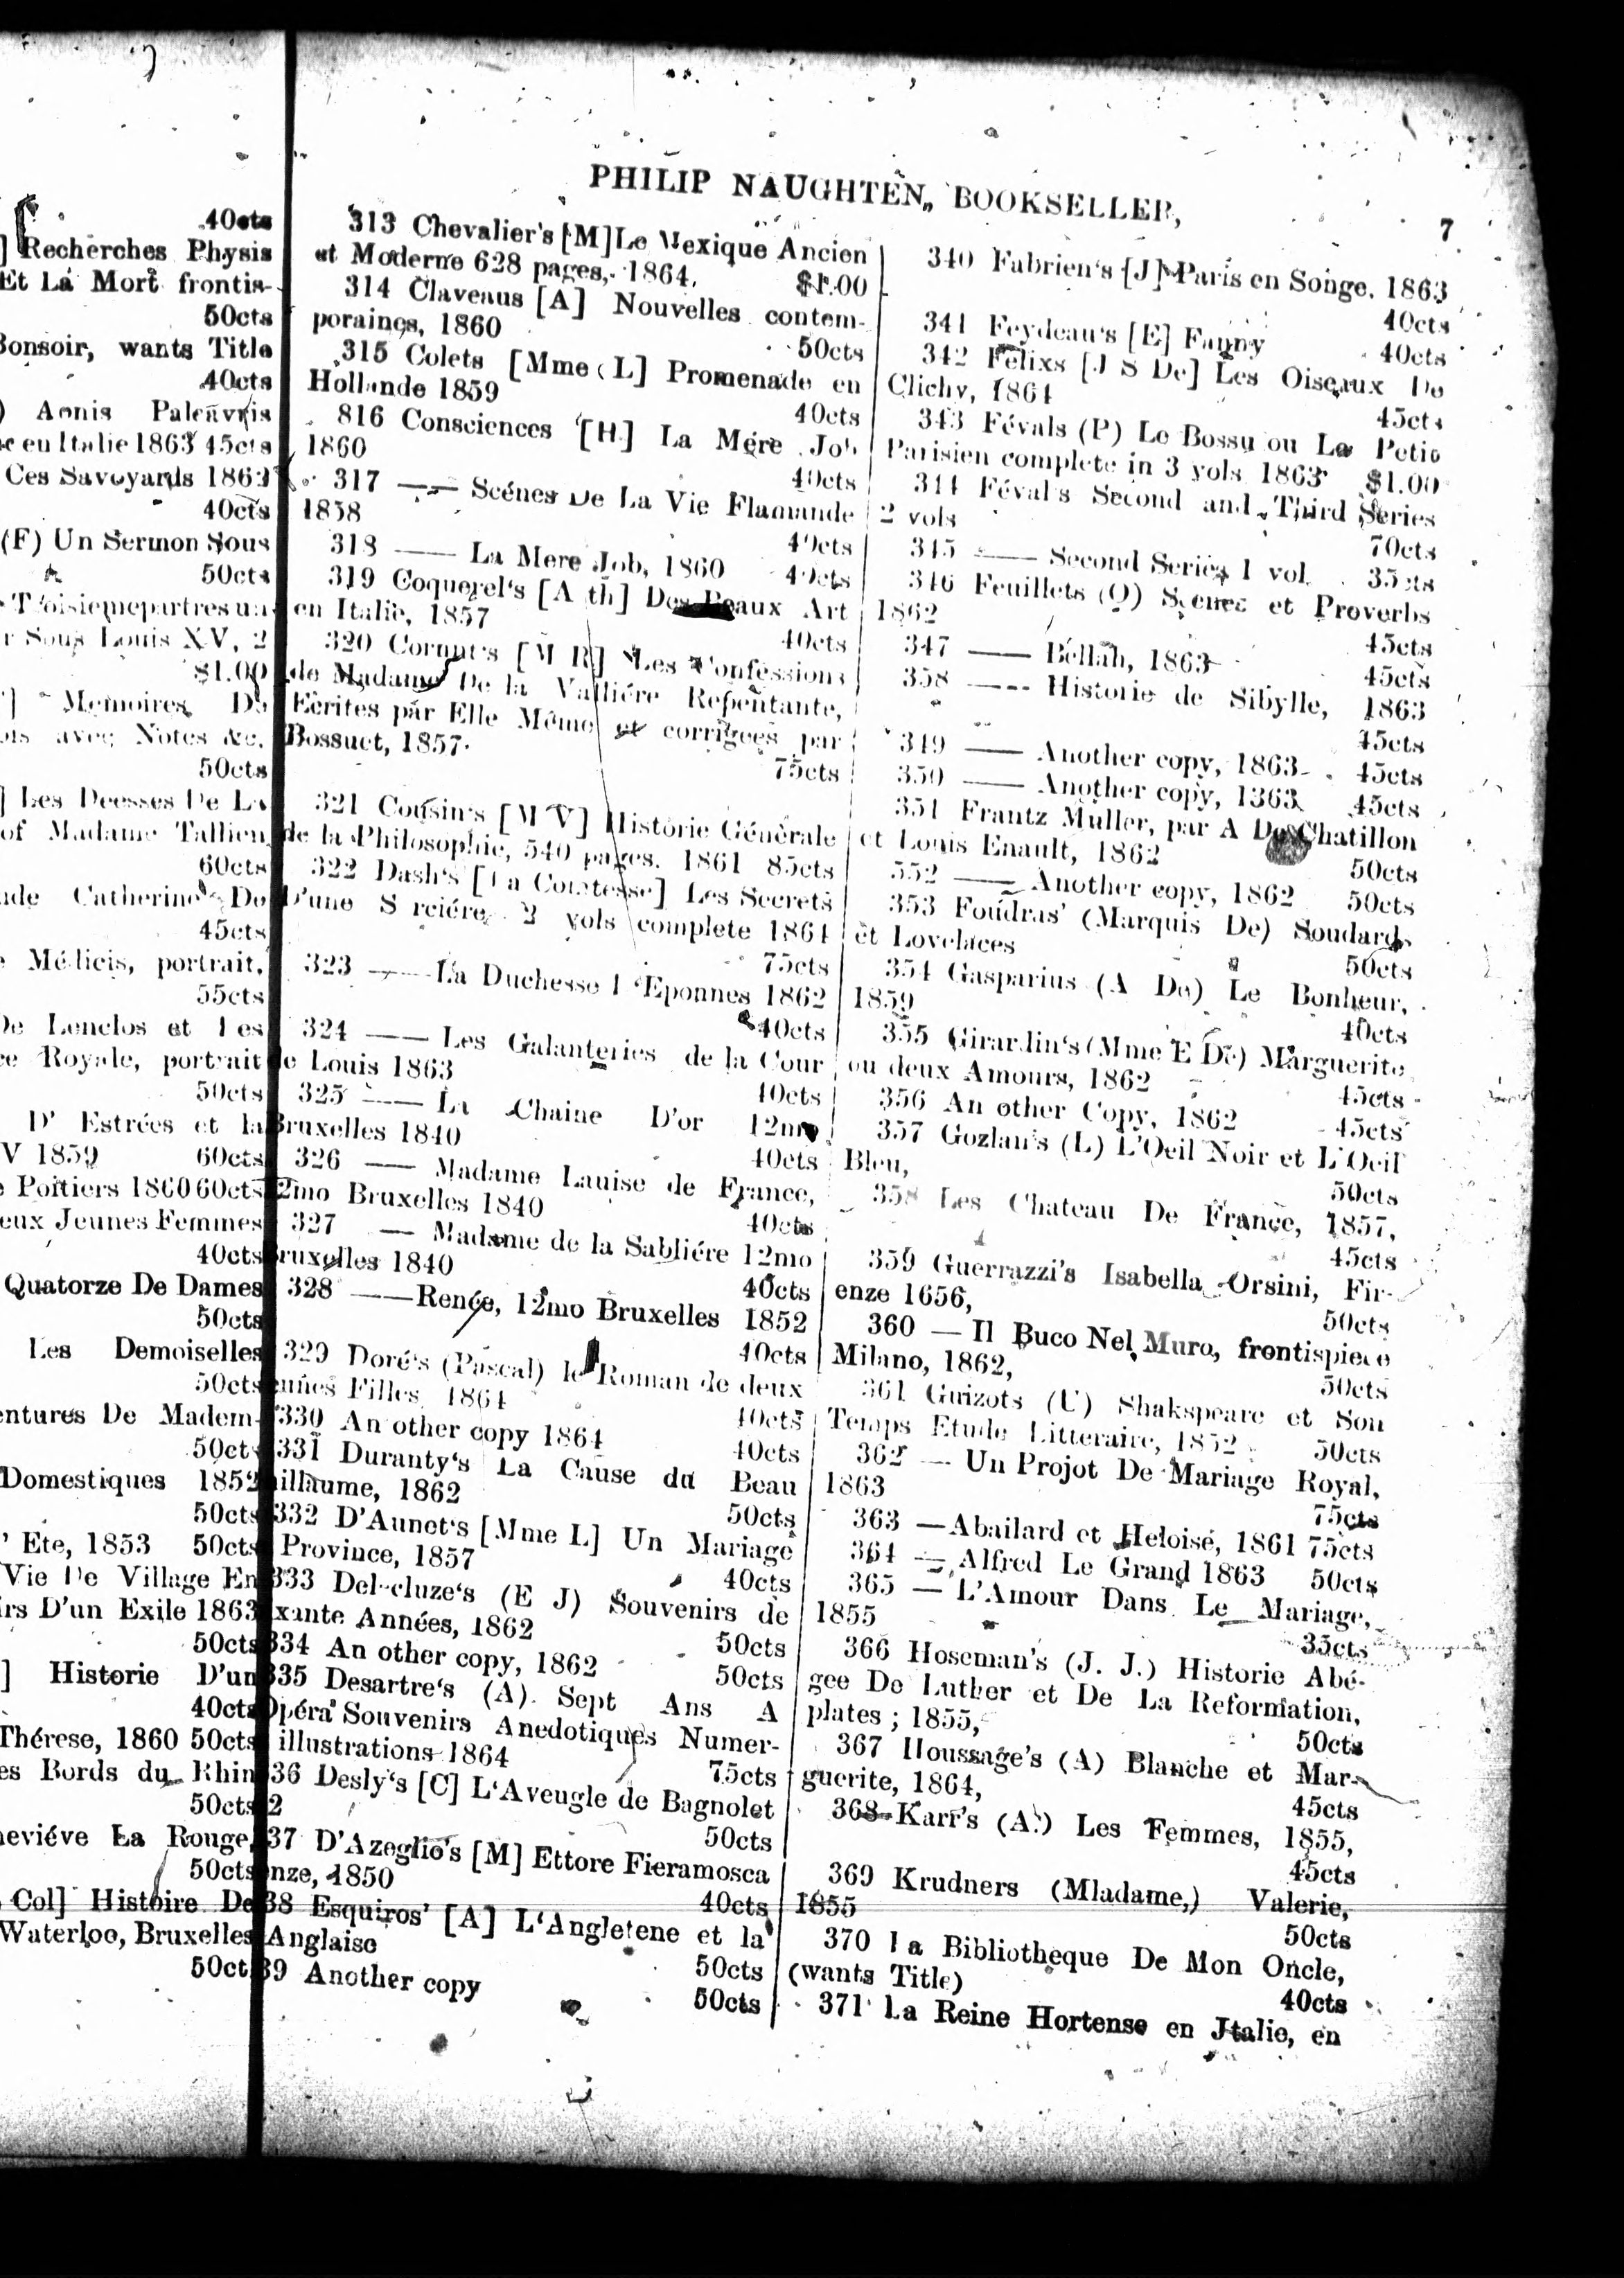 40cts
] Recherches Physis
Et La Mort frontis-
50cts
Bonsoir, wants Title
40cts
) Aonis Paleavris
ce en Italie 1863 45cts
Ces Savoyards 1862
40cts
(F) Un Sermon Sous
50cts
r Sous Louis XV, 2
$1.00
] Memoires De
ois avec Notes &c.
50cts
] Les Deesses De La
of Madame Tallien
60cts
Catherine De
45cts
Médicis, portrait,
55cts
De Lenclos et Les
ce Royale, portrait
50cts
D' Estrées et la
V 1859 60cts
Poitiers 1860 60cts
eux Jeunes Femmes
40cts
Quatorze De Dames
50cts
Les Demoiselles
50cts
entures De Madem-
50cts
Domestiques 1852
50cts
' Ete, 1853 50cts
Vie De Village En
irs D'un Exile 1863
50cts
] Historie D'un
40cts
Thérese, 1860 50cts
es Bords du Rhin
50cts
neviéve La Rouge,
50cts
Col] Histoire De
Waterloo, Bruxelles
50ct
PHILIP NAUGHTEN, BOOKSELLER,
7
313 Chevalier's [M] Le Mexique Ancien
et Moderne 628 pages, 1864, $1.00
314 Claveaus [A] Nouvelles contem-
poraines, 1860 50cts
315 Colets [Mme L] Promenade en
Hollande 1859 40cts
816 Consciences [H] La Mére Job
1860 40cts
317 —— Scénes De La Vie Flamande
1858 40cts
318 —— La Mere Job, 1860 40cts
319 Coquerel's [A th] Des Beaux Art
en Italie, 1857 40cts
320 Cornut's [M R] Les Confessions
de Madame De la Valliére Repentante,
Ecrites par Elle Méme et corrigees par
Bossuet, 1857.
75cts
321 Cousin's [M V] Historie Générale
de la Philosophie, 540 pages. 1861 85cts
322 Dash's [La Comtesse] Les Secrets
D'une S rciére 2 vols complete 1864
75cts
323 —— La Duchesse 1 'Eponnes 1862
40cts
324 —— Les Galanteries de la Cour
de Louis 1863 40cts
325 —— La Chaine D'or 12mo
Bruxelles 1840 40cts
326 —— Madame Lauise de France,
2mo Bruxelles 1840 40cts
327 — Madame de la Sabliére 12mo
Bruxelles 1840 40cts
328 ——Renée, 12mo Bruxelles 1852
40cts
329 Doré's (Pascal) le Roman de deux
ennes Filles 1864 40cts
330 An other copy 1864 40cts
331 Duranty's La Cause du Beau
uillaume, 1862 50cts
332 D'Aunet's [Mme L] Un Mariage
Province, 1857 40cts
333 Delecluze's (E J) Souvenirs de
xante Années, 1862 50cts
334 An other copy, 1862 50cts
335 Desartre's (A) Sept Ans A
Opéra Souvenirs Anedotiques Numer-
illustrations 1864 75cts
36 Desly's [C] L'Aveugle de Bagnolet
2 50cts
37 D'Azeglio's [M] Ettore Fieramosca
nze, 1850 40cts
38 Esquiros' [A] L'Angletene et la
Anglaise 50cts
39 Another copy 50cts
340 Fabrien's [J] Paris en Songe, 1863
40cts
341 Feydeau's [E] Fanny 40cts
342 Félixs [J S De] Les Oiseaux De
Clichy, 1864 45cts
343 Févals (P) Le Bossu ou Le Petit
Parisien complete in 3 vols 1863 $1.00
344 Féval's Second and Third Series
2 vols 70cts
345 —— Second Series 1 vol. 35cts
346 Feuillets (O) Scenes et Proverbs
1862 45cts
347 —— Bellah, 1863 45cts
358 —— Historie de Sibylle, 1863
45cts
349 —— Another copy, 1863 45cts
350 —— Another copy, 1363 45cts
351 Frantz Muller, par A De Chatillon
et Louis Enault, 1862 50cts
552 —— Another copy, 1862 50cts
353 Foudras' (Marquis De) Soudards
et Lovelaces 50cts
354 Gasparius (A De) Le Bonheur,
1859 40cts
355 Girardin's (Mme E De) Marguerite
ou deux Amours, 1862 45cts
356 An other Copy, 1862 45cts
357 Gozlan's (L) L'Oeil Noir et L'Oeil
Bleu, 50cts
358 Les Chateau De France, 1857,
45cts
359 Guerrazzi's Isabella Orsini, Fir-
enze 1656, 50cts
360 — Il Buco Nel Muro, frontispiece
Milano, 1862, 50cts
361 Guizots (U) Shakspeare et Son
Temps Etude Litteraire, 1852 50cts
362 — Un Projot De Mariage Royal,
1863 75cts
363 —Abailard et Heloisé, 1861 75cts
364 — Alfred Le Grand 1863 50cts
365 — L'Amour Dans Le Mariage,
1855 35cts
366 Hoseman's (J. J.) Historie Abé-
gee De Luther et De La Reformation,
plates ; 1855, 50cts
367 Houssage's (A) Blanche et Mar-
guerite, 1864, 45cts
368 Karr's (A.) Les Femmes, 1855,
45cts
369 Krudners (Mladame,) Valerie,
1855 50cts
370 La Bibliotheque De Mon Oncle,
(wants Title) 40cts
371 La Reine Hortense en Jtalie, en